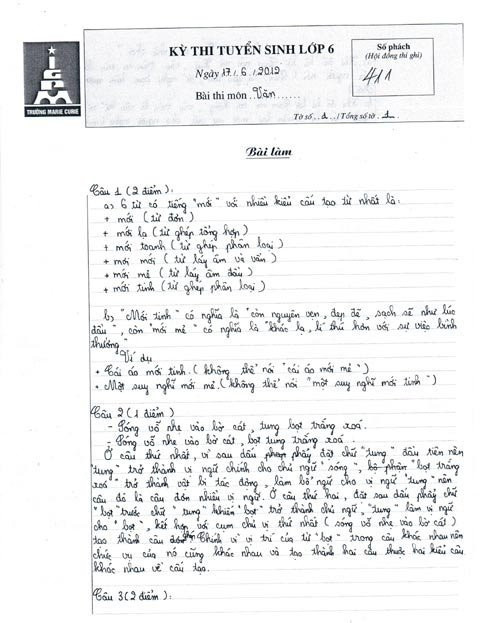 TRƯỜNG MARIE CURIE
KỲ THI TUYỂN SINH LỚP 6
Ngày 17/6/2012
Bài thi môn Văn
Số phách
(Hội đồng thi ghi)
411
Tờ số 1 /Tổng số tờ 1
Bài làm
Câu 1 (2 điểm):
a) 6 từ có tiếng "mới" với nhiều kiểu cấu tạo từ nhất là:
+ mới (từ đơn)
+ mới lạ (từ ghép tổng hợp)
+ mới toanh (từ ghép phân loại)
+ mới mới (từ láy âm và vần)
+ mới mẻ (từ láy âm đầu)
+ mới tinh (từ ghép phân loại)
b) "Mới tinh" có nghĩa là "còn nguyên vẹn, đẹp đẽ, sạch sẽ như lúc
đầu", còn "mới mẻ" có nghĩa là "khác lạ, lí thú hơn với sự việc bình
thường"
Ví dụ
+ Cái áo mới tinh. (không thể nói "cái áo mới mẻ")
+ Một suy nghĩ mới mẻ. (không thể nói "một suy nghĩ mới tinh")
Câu 2 (1 điểm)
- Sóng vỗ nhẹ vào bờ cát, tung bọt trắng xoá.
- Sóng vỗ nhẹ vào bờ cát, bọt tung trắng xoá.
Ở câu thứ nhất, vì sau dấu phẩy đặt chữ "tung" đầu tiên nên
"tung" trở thành vị ngữ chính cho chủ ngữ "sóng", bộ phận "bọt trắng
xoá" trở thành vật bị tác động, làm bổ ngữ cho vị ngữ "tung" nên
câu đó là câu đơn nhiều vị ngữ. Ở câu thứ hai, đặt sau dấu phẩy chữ
"bọt" trước chữ "tung" khiến "bọt" trở thành chủ ngữ, "tung" làm vị ngữ
cho "bọt", kết hợp với cụm chủ vị thứ nhất (sóng vỗ nhẹ vào bờ cát)
tạo thành câu ghép. Chính vì vị trí của từ "bọt" trong câu khác nhau nên
chức vụ của nó cũng khác nhau và tạo thành hai câu thuộc hai kiểu câu
khác nhau về cấu tạo.
Câu 3 (2 điểm):